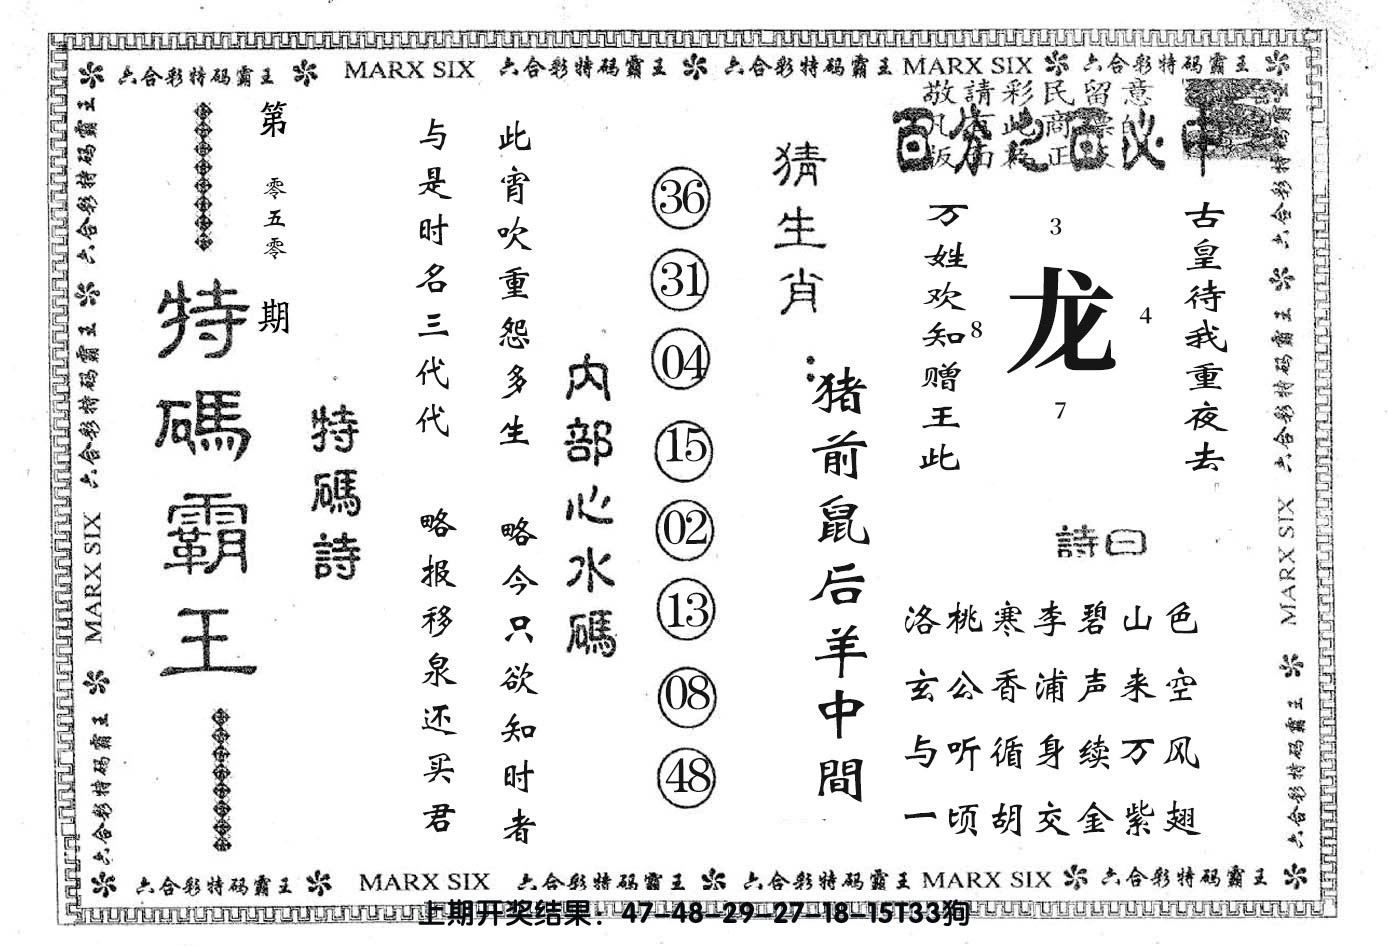 六合彩特码霸王 MARX SIX 六合彩特码霸王 六合彩特码霸王 MARX SIX 六合彩特码霸王
敬請彩民留意
百分之百必中
古皇待我重夜去
万姓欢知赠王此
3
8
龙
4
7
詩曰
洛桃寒李碧山色
玄公香浦声来空
与听循身续万风
一顷胡交金紫翅
猜生肖：
猪前鼠后羊中間
36
31
04
15
02
13
08
48
内部心水碼
此宵吹重怨多生 略今只欲知时者
与是时名三代代 略报移泉还买君
特碼詩
第零五零期
特碼霸王
六合彩特码霸王 六合彩特码霸王 MARX SIX 六合彩特码霸王
六合彩特码霸王 六合彩特码霸王 MARX SIX 六合彩特码霸王
六合彩特码霸王 MARX SIX 六合彩特码霸王 六合彩特码霸王 MARX SIX 六合彩特码霸王
上期开奖结果：47-48-29-27-18-15T33狗